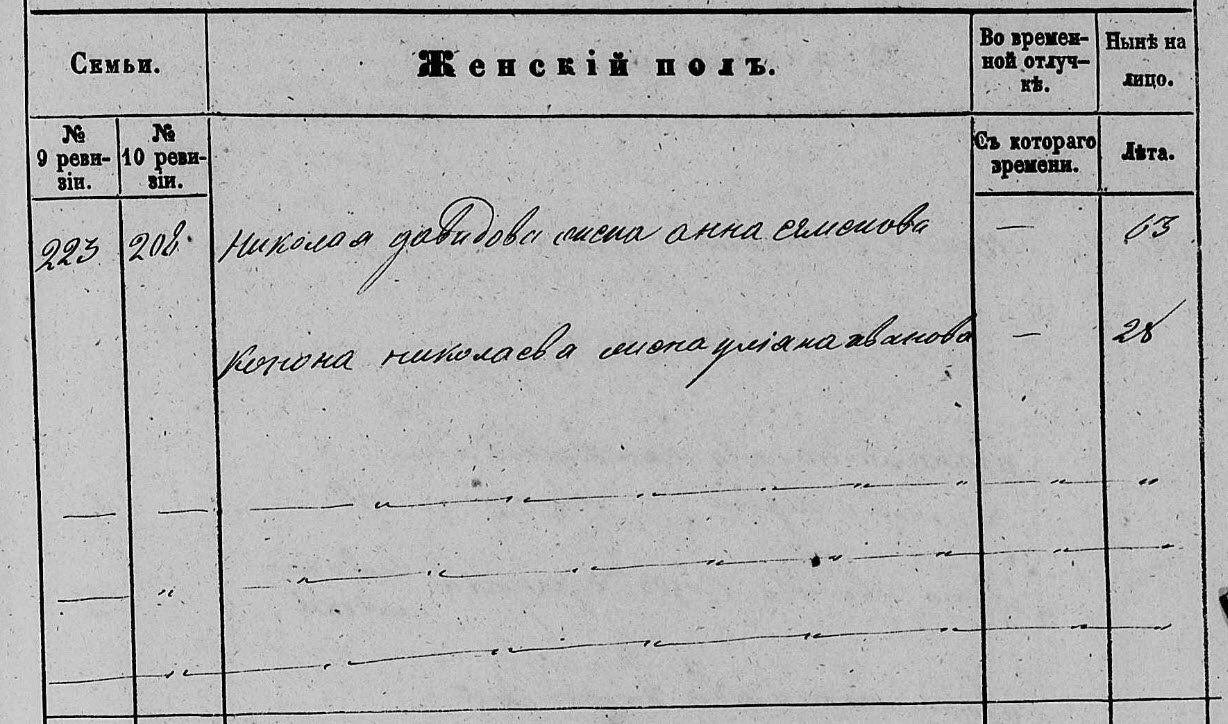 Семьи.
Женскій полъ.
Во времен-
ной отлуч-
кѣ.
Нынѣ на
лицо.
№
9 реви-
зіи.
№
10 реви-
зіи.
Съ котораго
времени.
Лѣта.
223 208 Николая давидова жена анна семенова — 63
Конона николаева жена уліана иванова — 28